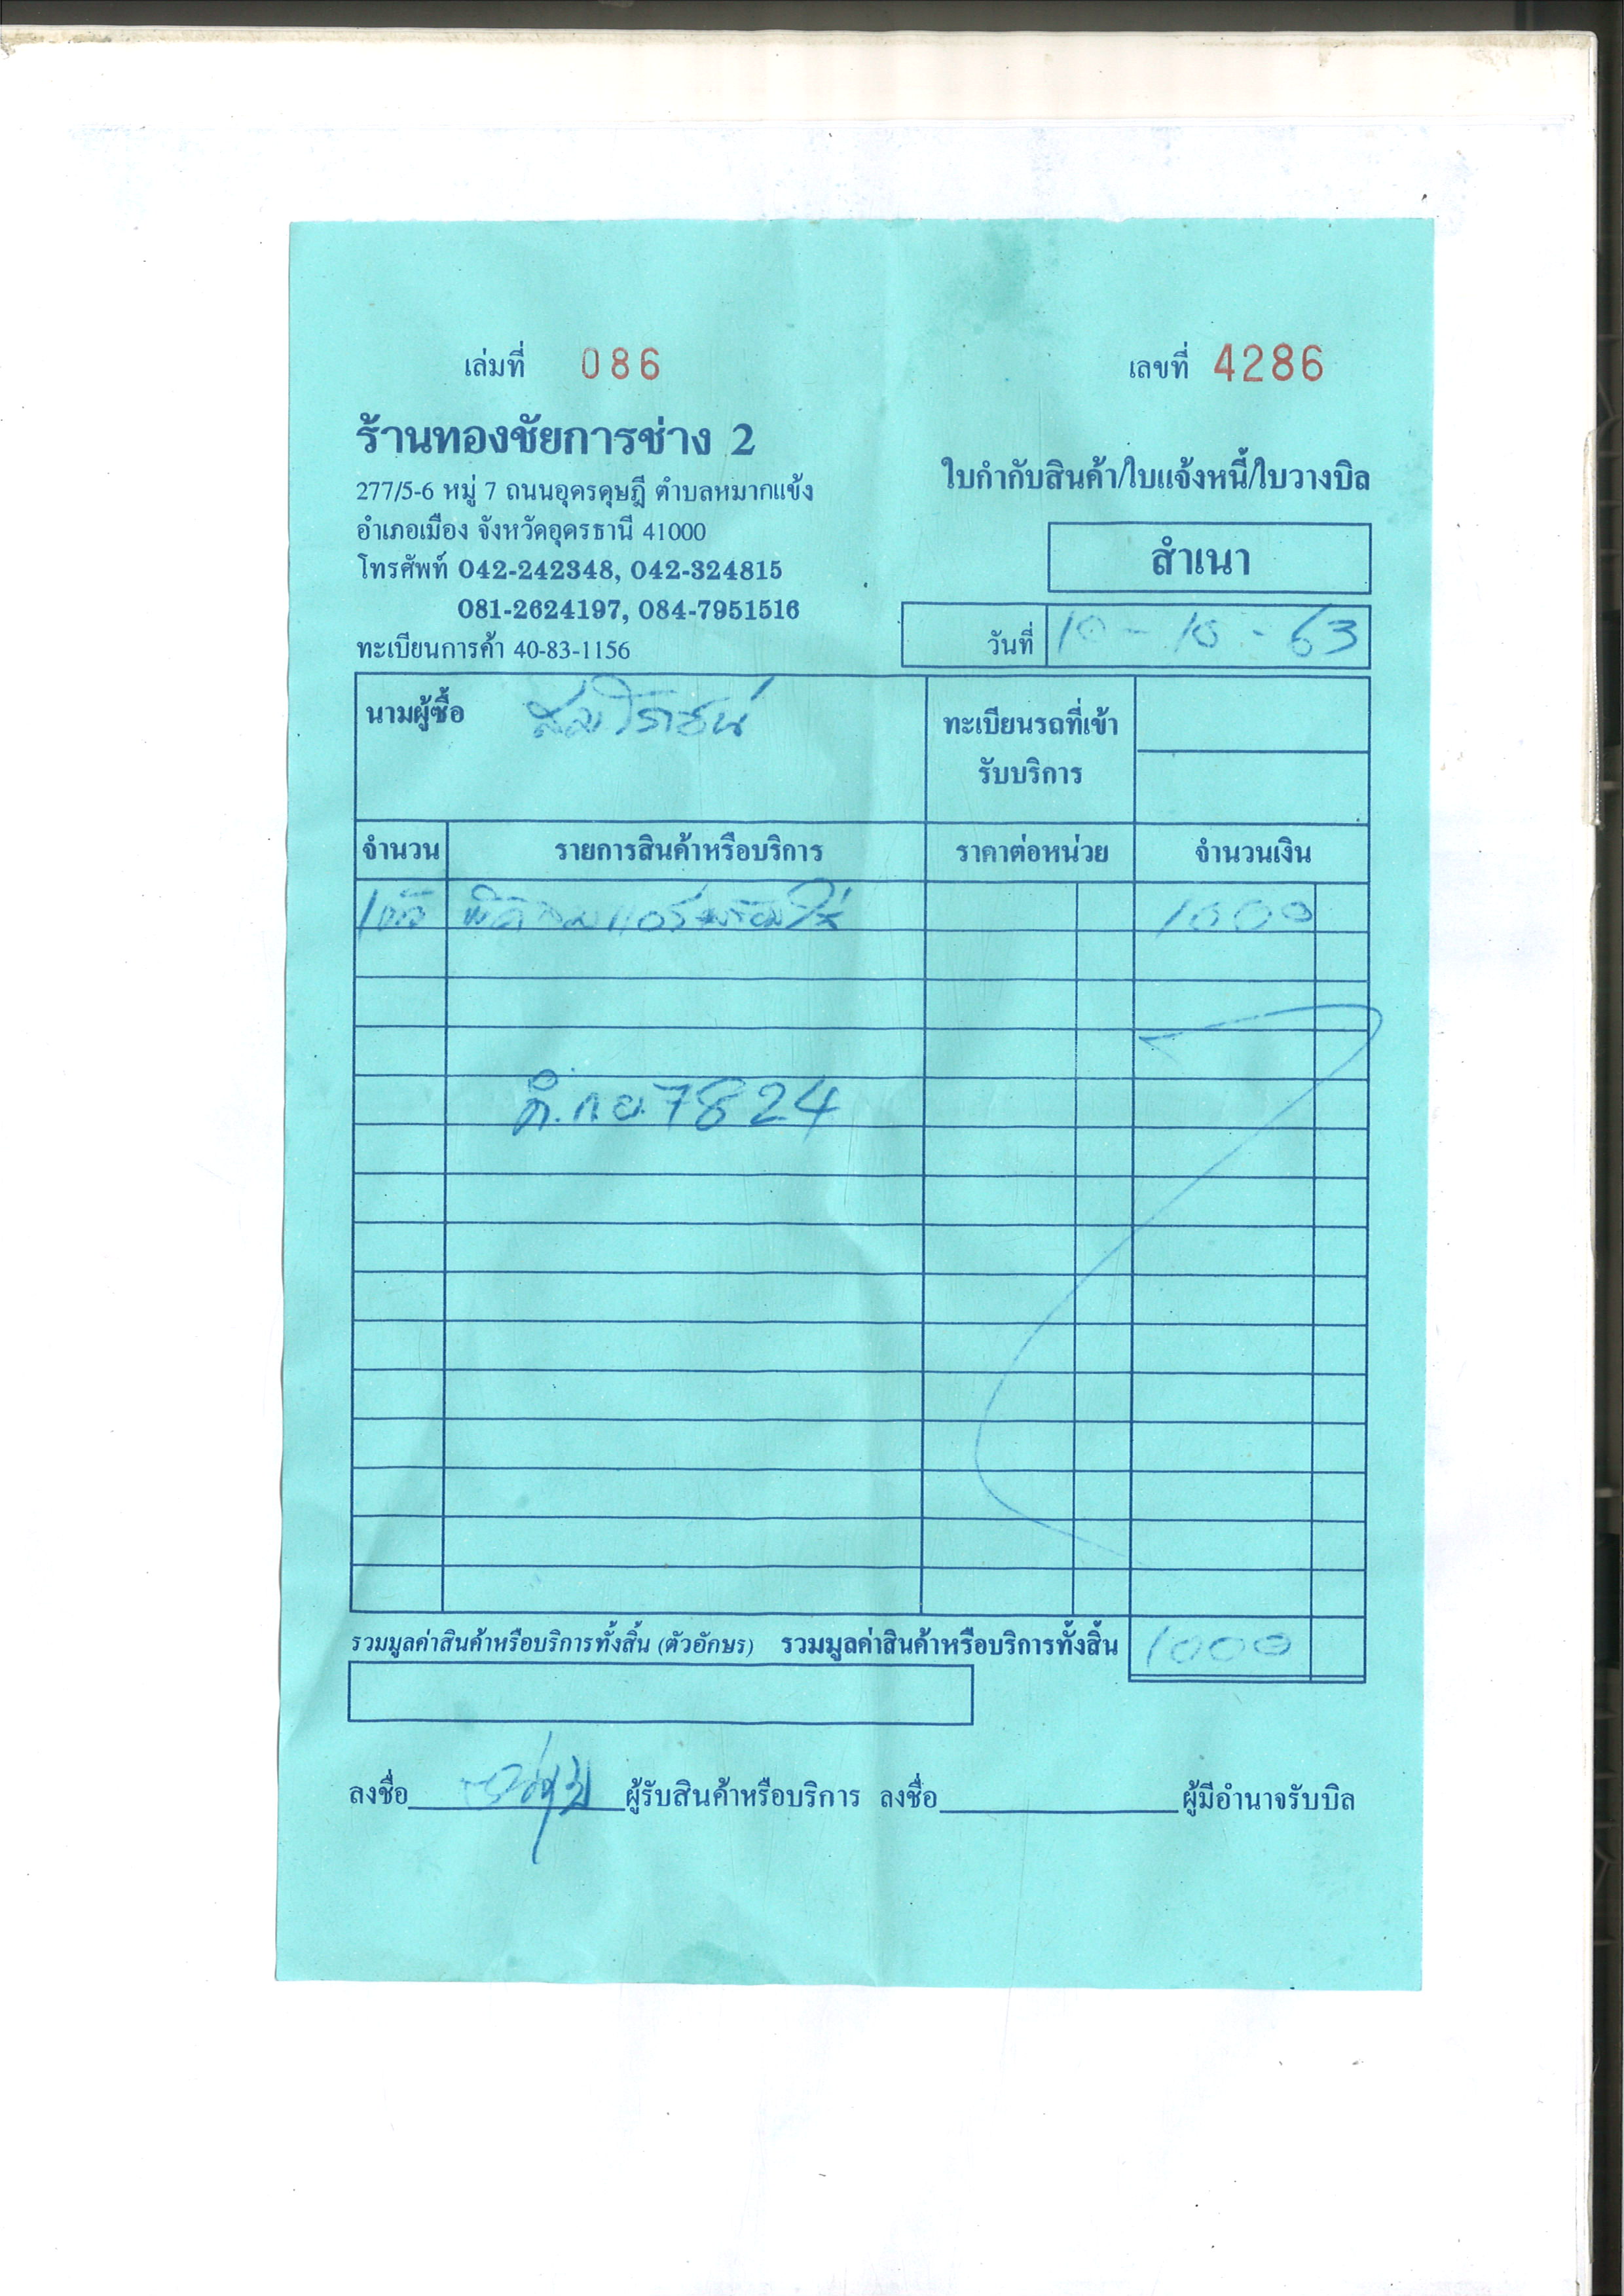 เล่มที่ 086 เลขที่ 4286
ร้านทองชัยการช่าง 2
277/5-6 หมู่ 7 ถนนอุดรดุษฎี ตำบลหมากแข้ง
อำเภอเมือง จังหวัดอุดรธานี 41000
โทรศัพท์ 042-242348, 042-324815
081-2624197, 084-7951516
ทะเบียนการค้า 40-83-1156
ใบกำกับสินค้า/ใบแจ้งหนี้/ใบวางบิล
สำเนา
วันที่ 10-10-63
นามผู้ซื้อ
ทะเบียนรถที่เข้า
รับบริการ
จำนวน รายการสินค้าหรือบริการ ราคาต่อหน่วย จำนวนเงิน
1 1000
7824
รวมมูลค่าสินค้าหรือบริการทั้งสิ้น (ตัวอักษร) รวมมูลค่าสินค้าหรือบริการทั้งสิ้น 1000
ลงชื่อ ผู้รับสินค้าหรือบริการ ลงชื่อ ผู้มีอำนาจรับบิล